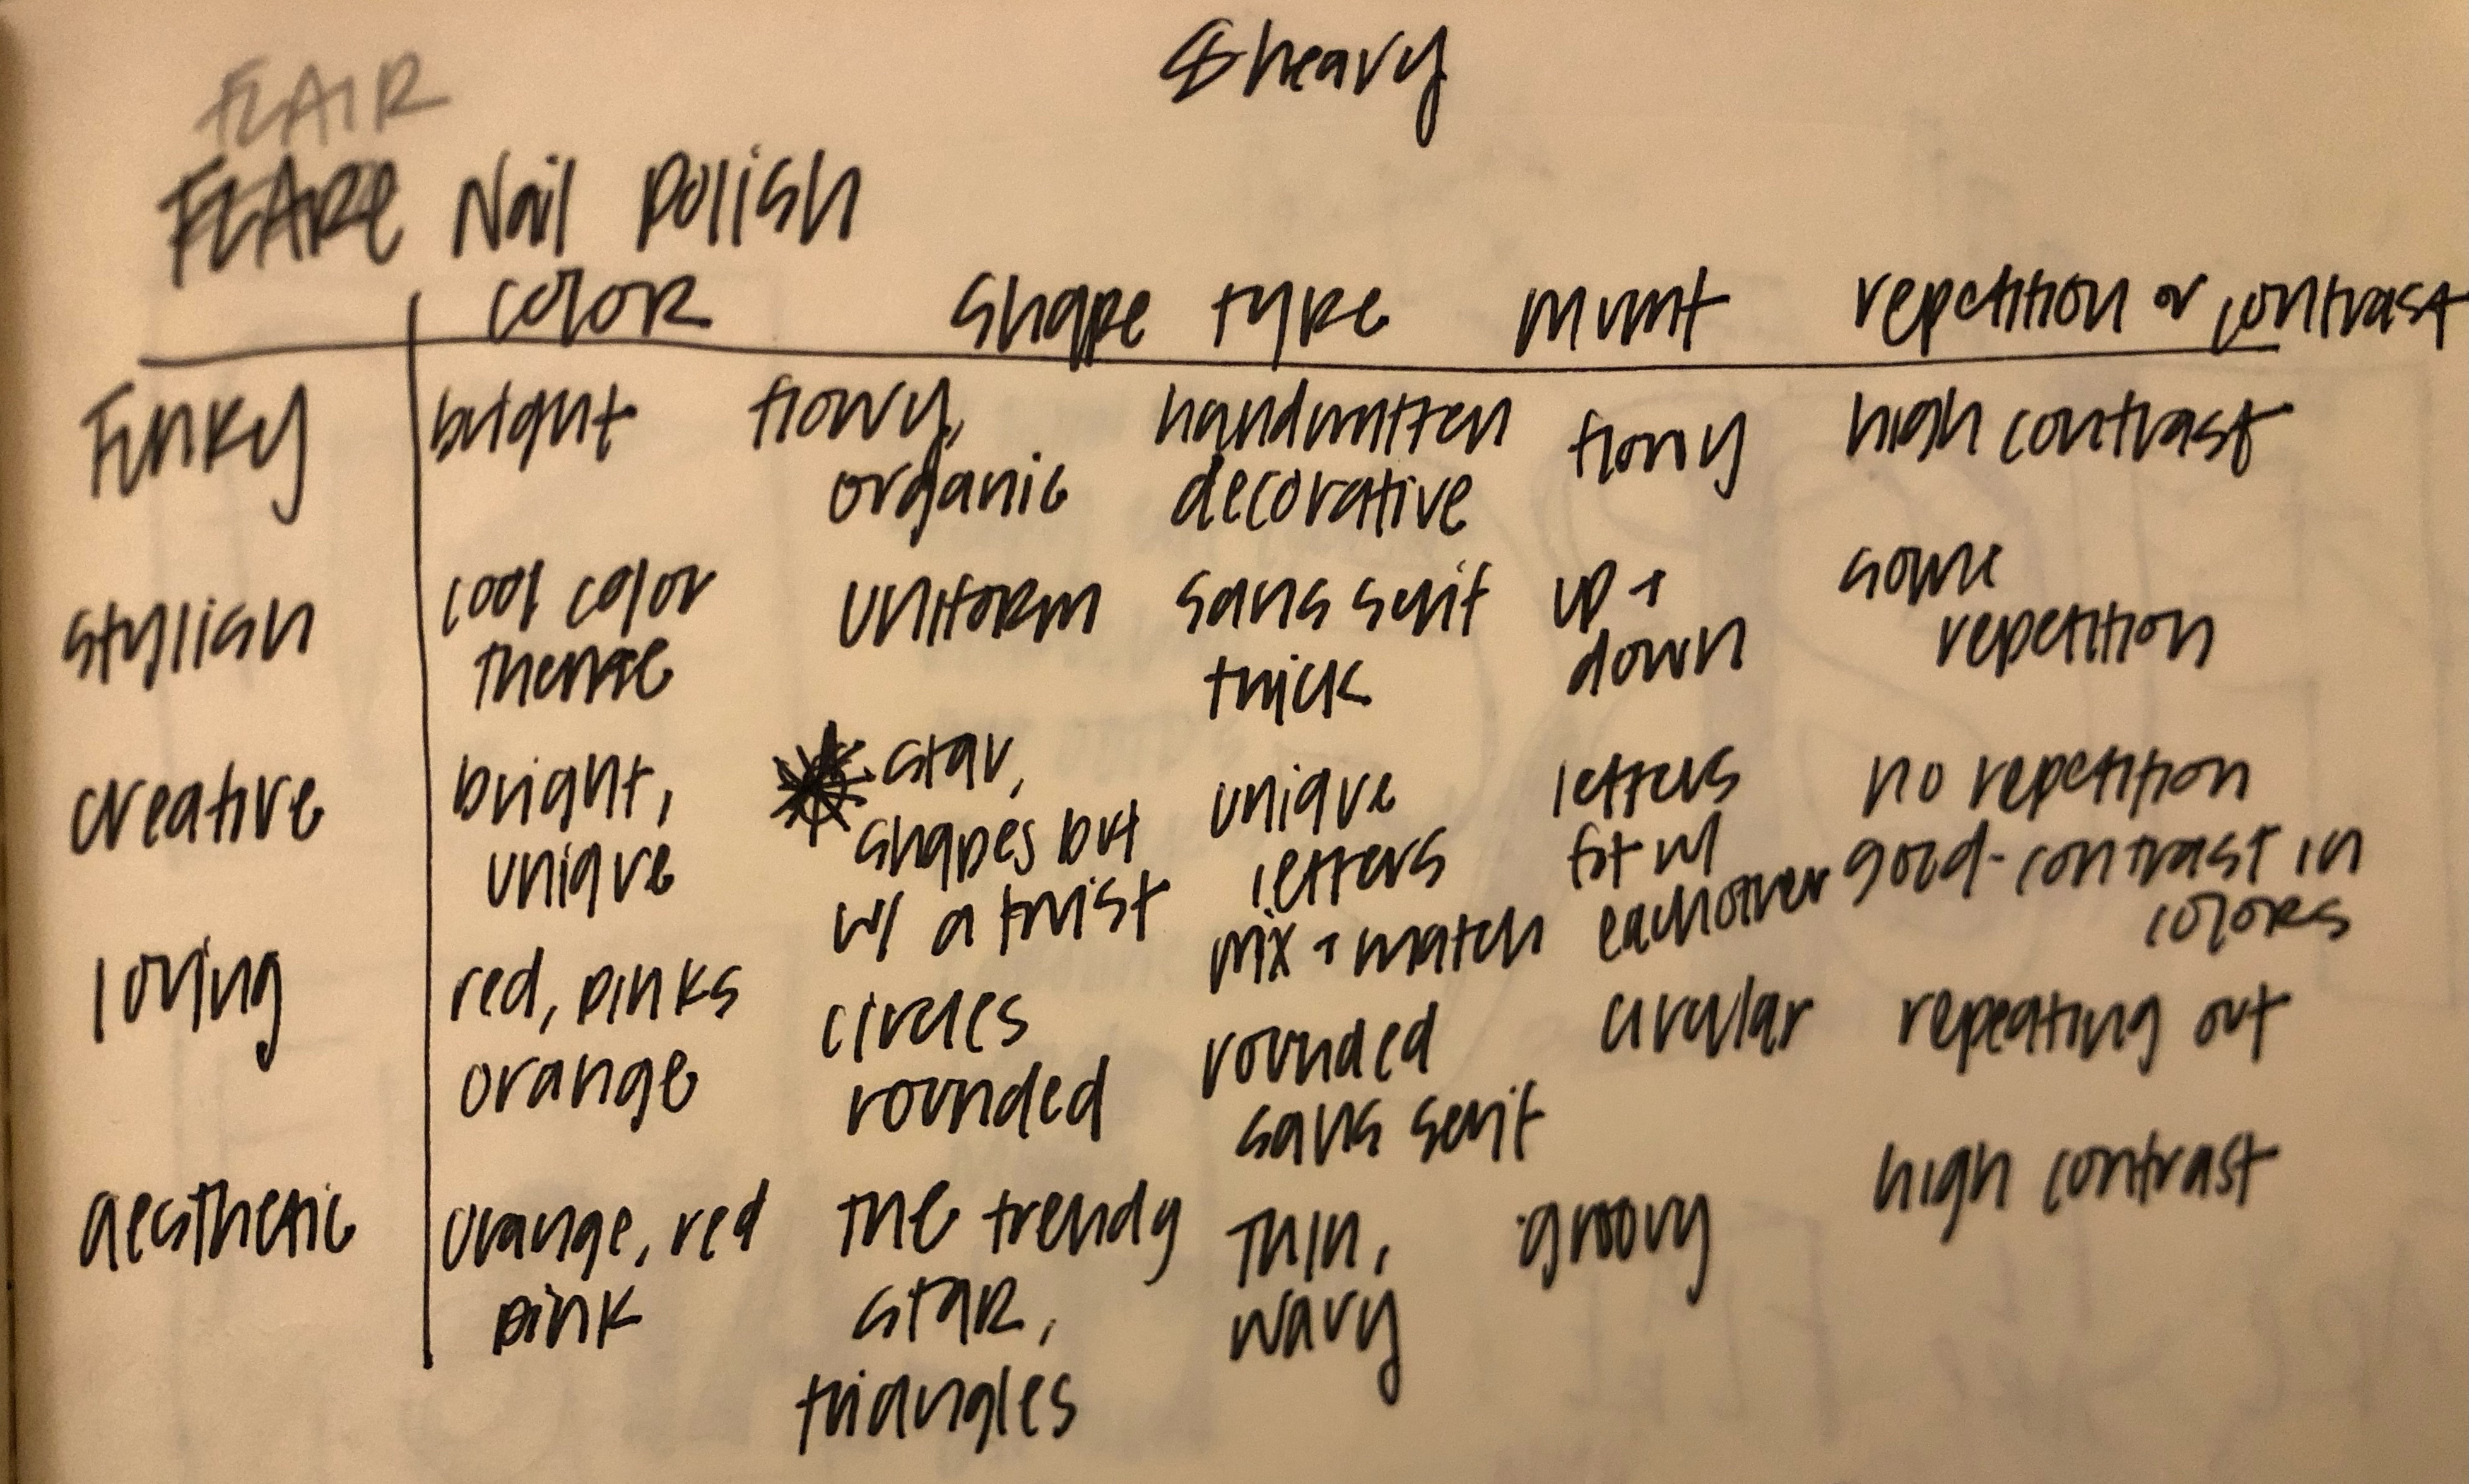 Sheavy
FLAIR
FLARE Nail Polish
color shape type mvmt repetition or contrast
Funky bright flowy, handwritten flowy high contrast
organic decorative
stylish cool color uniform sans serif up + some
theme thick down repetition
creative bright, star, unique letters no repetition
unique shapes but letters fit w/ good-contrast in
w/ a twist mix + match eachother colors
loving red, pinks circles rounded circular repeating out
orange rounded sans serif
aesthetic orange, red the trendy thin, groovy high contrast
pink star, wavy
triangles